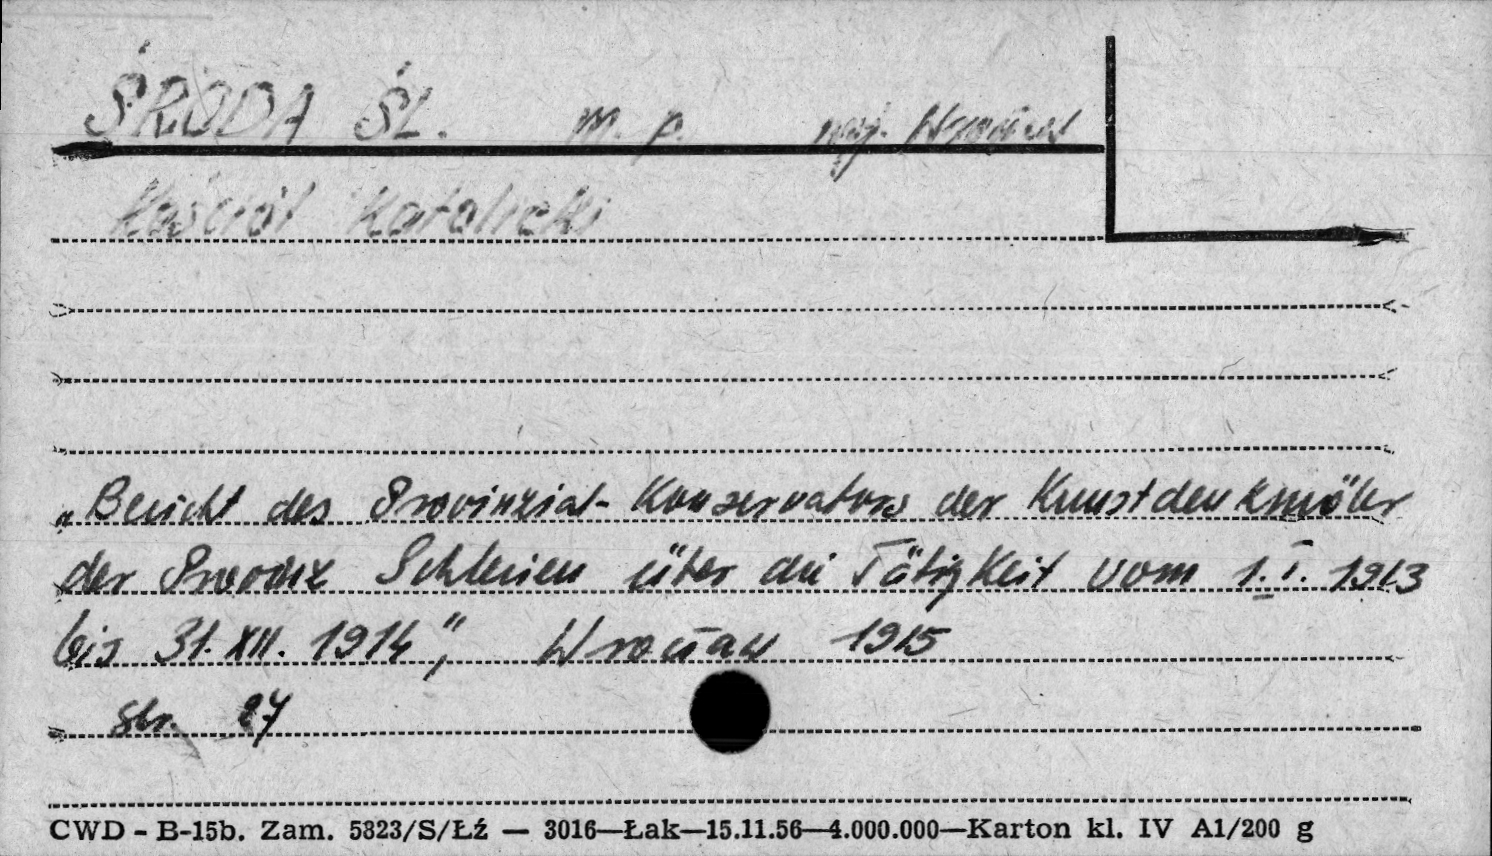 ŚRODA ŚL. m. p. woj. Wrocław
Kościół Katolicki
„Bericht des Provinzial-Konservators der Kunstdenkmäler
der Provinz Schlesien über die Tätigkeit vom 1.I. 1913
bis 31.XII. 1914", Wrocław 1915
str. 27
CWD - B-15b. Zam. 5823/S/Łź — 3016—Łak—15.11.56—4.000.000—Karton kl. IV A1/200 g